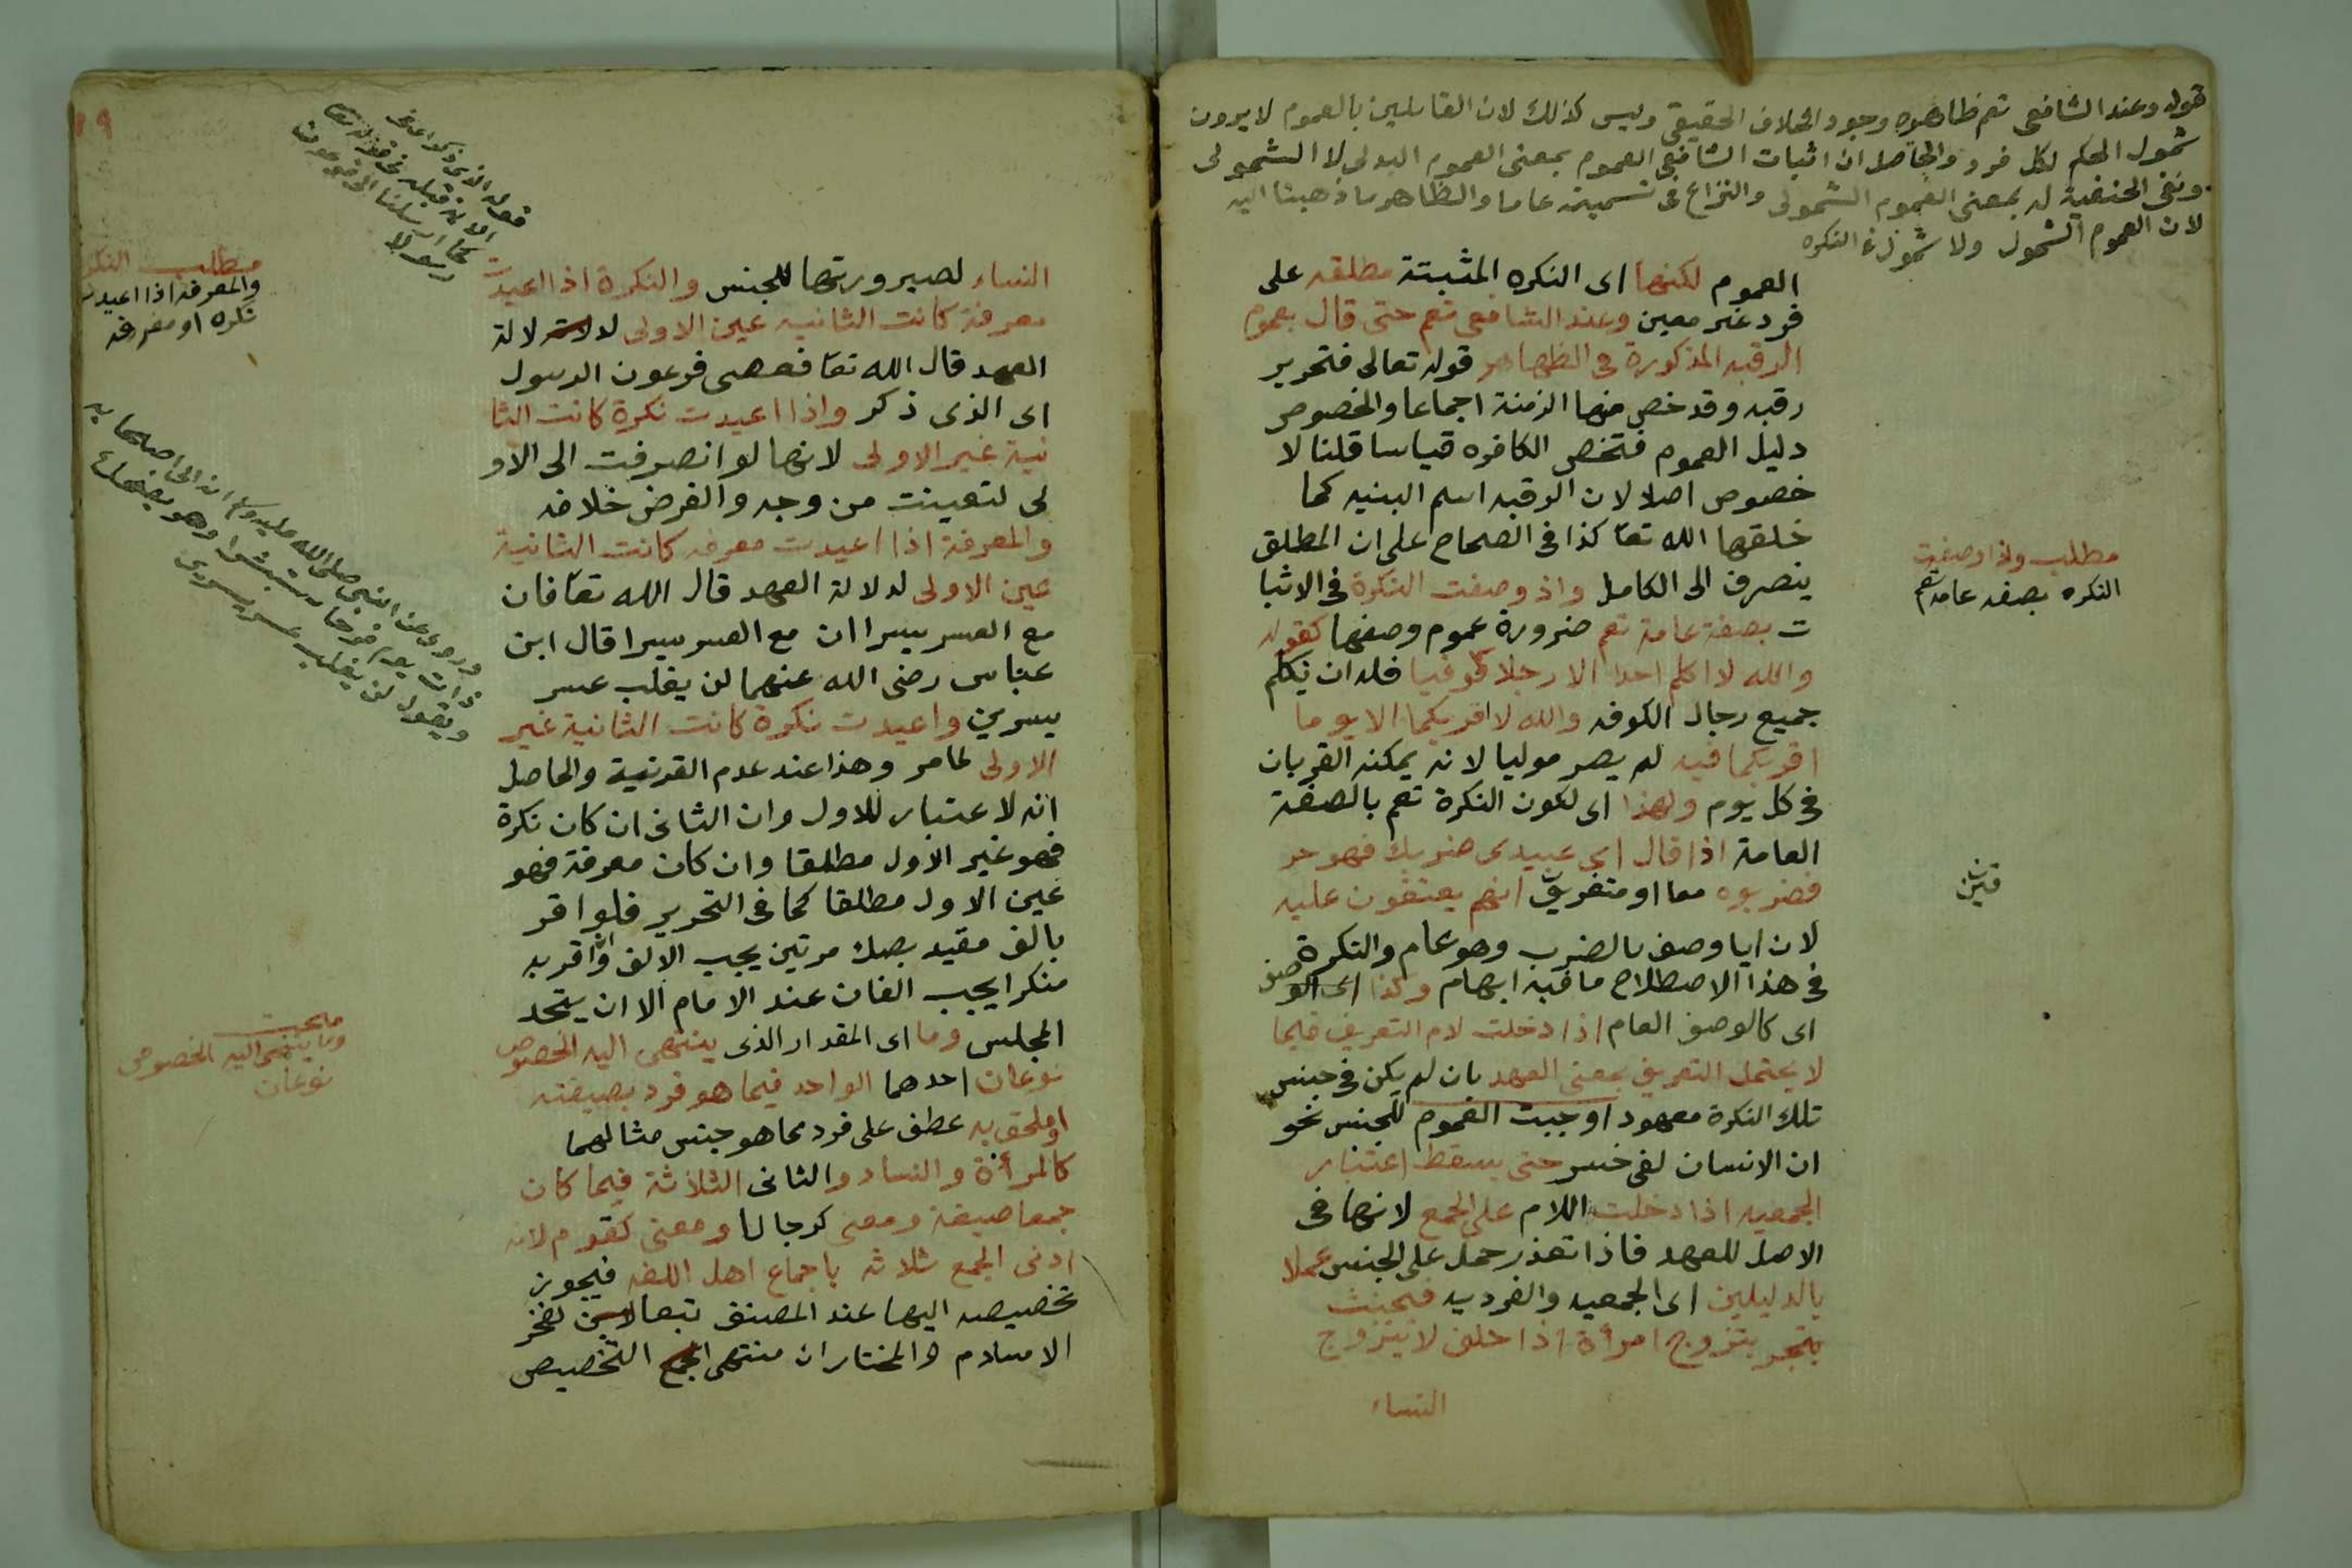 قوله وعند الشافعى تعم ظاهره وجود الخلاف الحقيقى وليس كذلك لان القايلين بالعموم لا يرون
شمول الحكم لكل فرد والحاصل ان اثبات الشافعى العموم بمعنى العموم البدلى لا الشمولى
ونفى الحنفية له بمعنى العموم الشمولى والنزاع فى تسميته عاما والظاهر ما ذهبنا اليه
لان العموم الشمول ولا شمول فى النكره
العموم لكنها اى النكره المثبتة مطلقه على
فرد غير معين وعند الشافعى تعم حتى قال بعموم
الرقبه المذكورة فى الظهار قوله تعالى فتحرير
رقبه وقد خص منها الزمنة اجماعا والخصوص
دليل العموم فتخص الكافره قياسا قلنا لا
خصوص اصلا لان الرقبه اسم البنيه كما
خلقها الله تعا كذا فى الصحاح على ان المطلق
ينصرف الى الكامل واذ وصفت النكرة فى الاثبا
ت بصفة عامة تعم ضرورة عموم وصفها كقوله
والله لا اكلم احدا الا رجلا كوفيا فله ان يكلم
جميع رجال الكوفه والله لا اقربكما الا يوما
اقربكما فيه لم يصر موليا لانه يمكنه القربان
فى كل يوم ولهذا اى لكون النكرة تعم بالصفة
العامة اذا قال اى عبيدى ضربك فهو حر
فضربوه معا او متفريق انهم يعتقون عليه
لان ايا وصف بالضرب وهو عام والنكرة
فى هذا الاصطلاح ما فيه ابهام وكذا اى الوصف
اى كالوصف العام اذا دخلت لام التعريف فيما
لا يحتمل التعريف بمعنى العهد بان لم يكن فى جنس
تلك النكرة معهود اوجبت العموم للجنس نحو
ان الانسان لفى خسر حتى يسقط اعتبار
الجمعيه اذا دخلت اللام على الجمع لانها فى
الاصل للعهد فاذا تعذر حمل على الجنس عملا
بالدليلين اى الجمعيه والفرديه فيحنث
بتزوج امرأة اذا حلف لا يتزوج
النساء
مطلب واذا وصفت
النكره بصفه عامه تعم
قين
١٩
النساء لصيرورتها للجنس والنكرة اذا اعيدت
معرفة كانت الثانيه عين الاولى لدلالة
العهد قال الله تعا فعصى فرعون الرسول
اى الذى ذكر واذا اعيدت نكرة كانت الثا
نية غير الاولى لانها لو انصرفت الى الاو
لى لتعينت من وجه والفرض خلافه
والمعرفة اذا اعيدت معرفه كانت الثانية
عين الاولى لدلالة العهد قال الله تعا فان
مع العسر يسرا ان مع العسر يسرا قال ابن
عباس رضى الله عنهما لن يغلب عسر
يسرين واعيدت نكرة كانت الثانية غير
الاولى لما مر وهذا عند عدم القرنية والحاصل
انه لا عتبار للاول وان الثانى ان كان نكرة
فهو غير الاول مطلقا وان كان معرفة فهو
عين الاول مطلقا كما فى التحرير فلو اقر
بالف مقيد بصك مرتين يجب الالف واقر به
منكرا يجب الفان عند الامام الا ان يتحد
المجلس وما اى المقدار الذى ينتهى اليه الخصوص
نوعان احدهما الواحد فيما هو فرد بصيغته
او ملحق به عطف على فرد مما هو جنس مثالهما
كالمرأة والنساء والثانى الثلاثة فيما كان
جمعا صيغة ومعنى كرجالا ومعنى كقوم لان
ادنى الجمع ثلاثه باجماع اهل اللغه فيجوز
تخصيصه اليها عند المصنف تبعا لفخر
الاسلام والمختار ان منتهى التخصيص
قوله الذى ذكر
الانه قبله قوله تعا
كما ارسلنا الى فرعون
رسولا
مطلب النكر
والمعرفه اذا اعيدت
نكره او معرفه
وروى عن النبى صلى الله عليه وسلم انه الى اصحابه
ذات يوم فرحا مستبشرا وهو يضحك
ويقول لن يغلب عسر يسرين
مبحث
وما ينتهى اليه الخصوص
نوعان